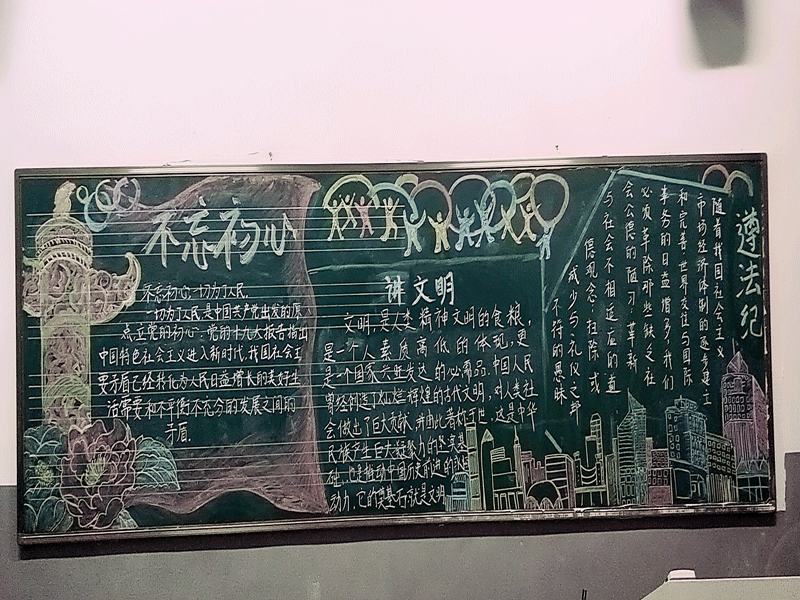 不忘初心
不忘初心,一切为了人民.
一切为了人民是中国共产党出发的原
点,立党的初心.党的十九大报告指出
中国特色社会主义进入新时代.我国社会主
要矛盾已经转化为人民日益增长的美好生
活需要和不平衡不充分的发展之间的
矛盾.
讲文明
文明,是人类精神文明的食粮,
是一个人素质高低的体现,更
是一个国家兴旺发达的必需品.中国人民
曾经创造了灿烂辉煌的古代文明,对人类社
会做出了巨大贡献,并因此著称于世,这是中华
民族产生巨大凝聚力的坚实基
础,也是推动中国历史前进的永恒
动力,它的奠基石就是文明
遵法纪
随着我国社会主义
市场经济体制的逐步建立
和完善.世界交往与国际
事务的日益增多,我们
必须革除那些缺乏社
会公德的陋习,革新
与社会不相适应的道
德观念,扫除或
减少与礼仪之邦
不符的愚昧